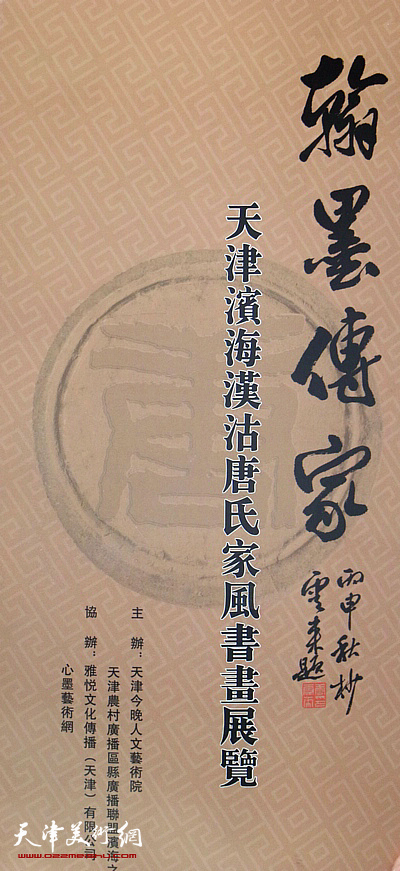 翰墨傳家
丙申秋杪
雲來題
天津濱海漢沽唐氏家風書畫展覽
主辦：天津今晚人文藝術院
天津農村廣播區縣廣播聯盟濱海之
協辦：雅悦文化傳播（天津）有限公司
心墨藝術網
天津美術網